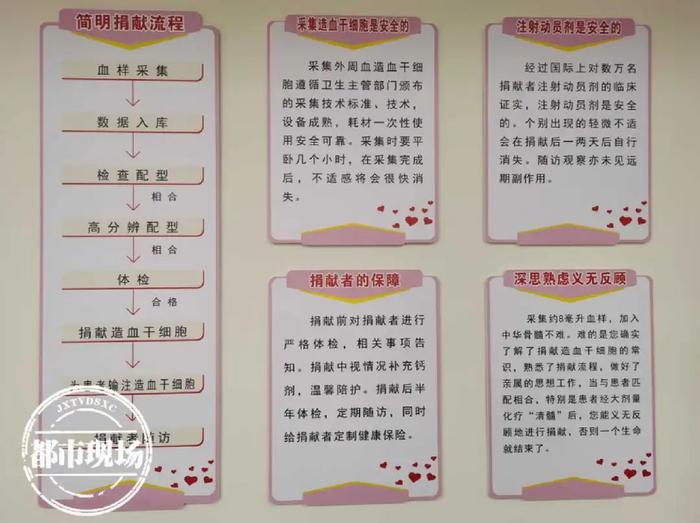 简明捐献流程
血样采集
数据入库
检查配型
相合
高分辨配型
相合
体检
合格
捐献造血干细胞
为患者输注造血干细胞
捐献者随访
采集造血干细胞是安全的
采集外周血造血干细
胞遵循卫生主管部门颁布
的采集技术标准、技术,
设备成熟,耗材一次性使
用安全可靠。采集时要平
卧几个小时,在采集完成
后,不适感将会很快消
失。
注射动员剂是安全的
经过国际上对数万名
捐献者注射动员剂的临床
证实,注射动员剂是安全
的。个别出现的轻微不适
会在捐献后一两天后自行
消失。随访观察亦未见远
期副作用。
捐献者的保障
捐献前对捐献者进行
严格体检,相关事项告
知。捐献中视情况补充钙
剂,温馨陪护。捐献后半
年体检,定期随访,同时
给捐献者定制健康保险。
深思熟虑义无反顾
采集约8毫升血样,加入
中华骨髓不难。难的是您确实
了解了捐献造血干细胞的常
识,熟悉了捐献流程,做好了
亲属的思想工作,当与患者匹
配相合,特别是患者经大剂量
化疗“清髓”后,您能义无反
顾地进行捐献,否则一个生命
就结束了。
JXTVDSXC
都市现场